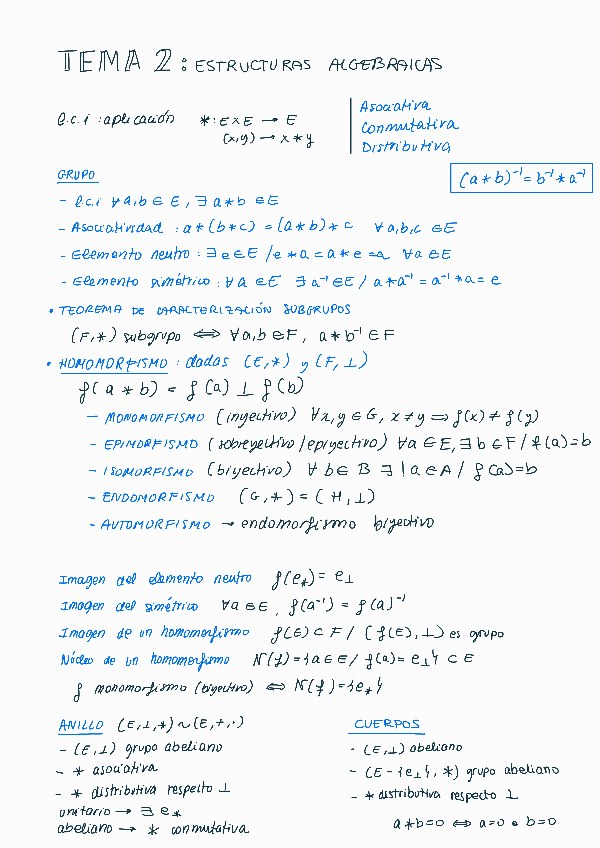 TEMA 2: ESTRUCTURAS ALGEBRAICAS
l.c.i : aplicación    * : E x E → E
(x,y) → x * y
Asociativa
Conmutativa
Distributiva
GRUPO
(a * b)⁻¹ = b⁻¹ * a⁻¹
- l.c.i ∀ a,b ∈ E, ∃ a * b ∈ E
- Asociatividad : a * (b * c) = (a * b) * c   ∀ a,b,c ∈ E
- Elemento neutro : ∃ e ∈ E / e * a = a * e = a   ∀ a ∈ E
- Elemento simétrico : ∀ a ∈ E   ∃ a⁻¹ ∈ E / a * a⁻¹ = a⁻¹ * a = e
• TEOREMA DE CARACTERIZACIÓN SUBGRUPOS
(F, *) subgrupo ⟺ ∀ a,b ∈ F, a * b⁻¹ ∈ F
• HOMOMORFISMO : dadas (E, *) y (F, ⊥)
f(a * b) = f(a) ⊥ f(b)
- MONOMORFISMO (inyectivo) ∀ x,y ∈ G, x ≠ y ⟹ f(x) ≠ f(y)
- EPIMORFISMO (sobreyectivo/epiyectivo) ∀ a ∈ E, ∃ b ∈ F / f(a) = b
- ISOMORFISMO (biyectivo) ∀ b ∈ B ∃! a ∈ A / f(a) = b
- ENDOMORFISMO (G, *) = (H, ⊥)
- AUTOMORFISMO → endomorfismo biyectivo
Imagen del elemento neutro f(e*) = e⊥
Imagen del simétrico ∀ a ∈ E, f(a⁻¹) = f(a)⁻¹
Imagen de un homomorfismo f(E) ⊂ F / (f(E), ⊥) es grupo
Núcleo de un homomorfismo N(f) = {a ∈ E / f(a) = e⊥} ⊂ E
f monomorfismo (biyectivo) ⟺ N(f) = {e*}
ANILLO (E, ⊥, *) ~ (E, +, ·)
- (E, ⊥) grupo abeliano
- * asociativa
- * distributiva respecto ⊥
unitario → ∃ e*
abeliano → * conmutativa
CUERPOS
- (E, ⊥) abeliano
- (E - {e⊥}, *) grupo abeliano
- * distributiva respecto ⊥
a * b = 0 ⟺ a = 0 o b = 0